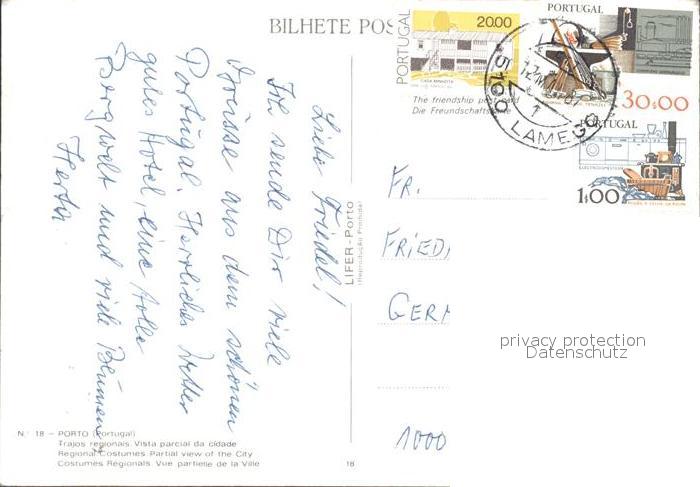 BILHETE POS
PORTUGAL
20.00
CASA MINHOTA
PORTUGAL
30$00
PORTUGAL
1$00
5100 LAMEGO
The friendship post card
Die Freundschafts
Liebe Friedel!
Ich sende Dir viele
Grüsse aus dem schönen
Portugal. Herrliches Wetter
gutes Hotel, eine tolle
Bergwelt und viele Blumen,
Herta.
LIFER-Porto
(Reprodução Proibida)
FR.
FRIED
GER
1000
privacy protection
Datenschutz
N.º 18 — PORTO (Portugal)
Trajos regionais. Vista parcial da cidade
Regional Costumes. Partial view of the City
Costumes Régionals. Vue partielle de la Ville
18